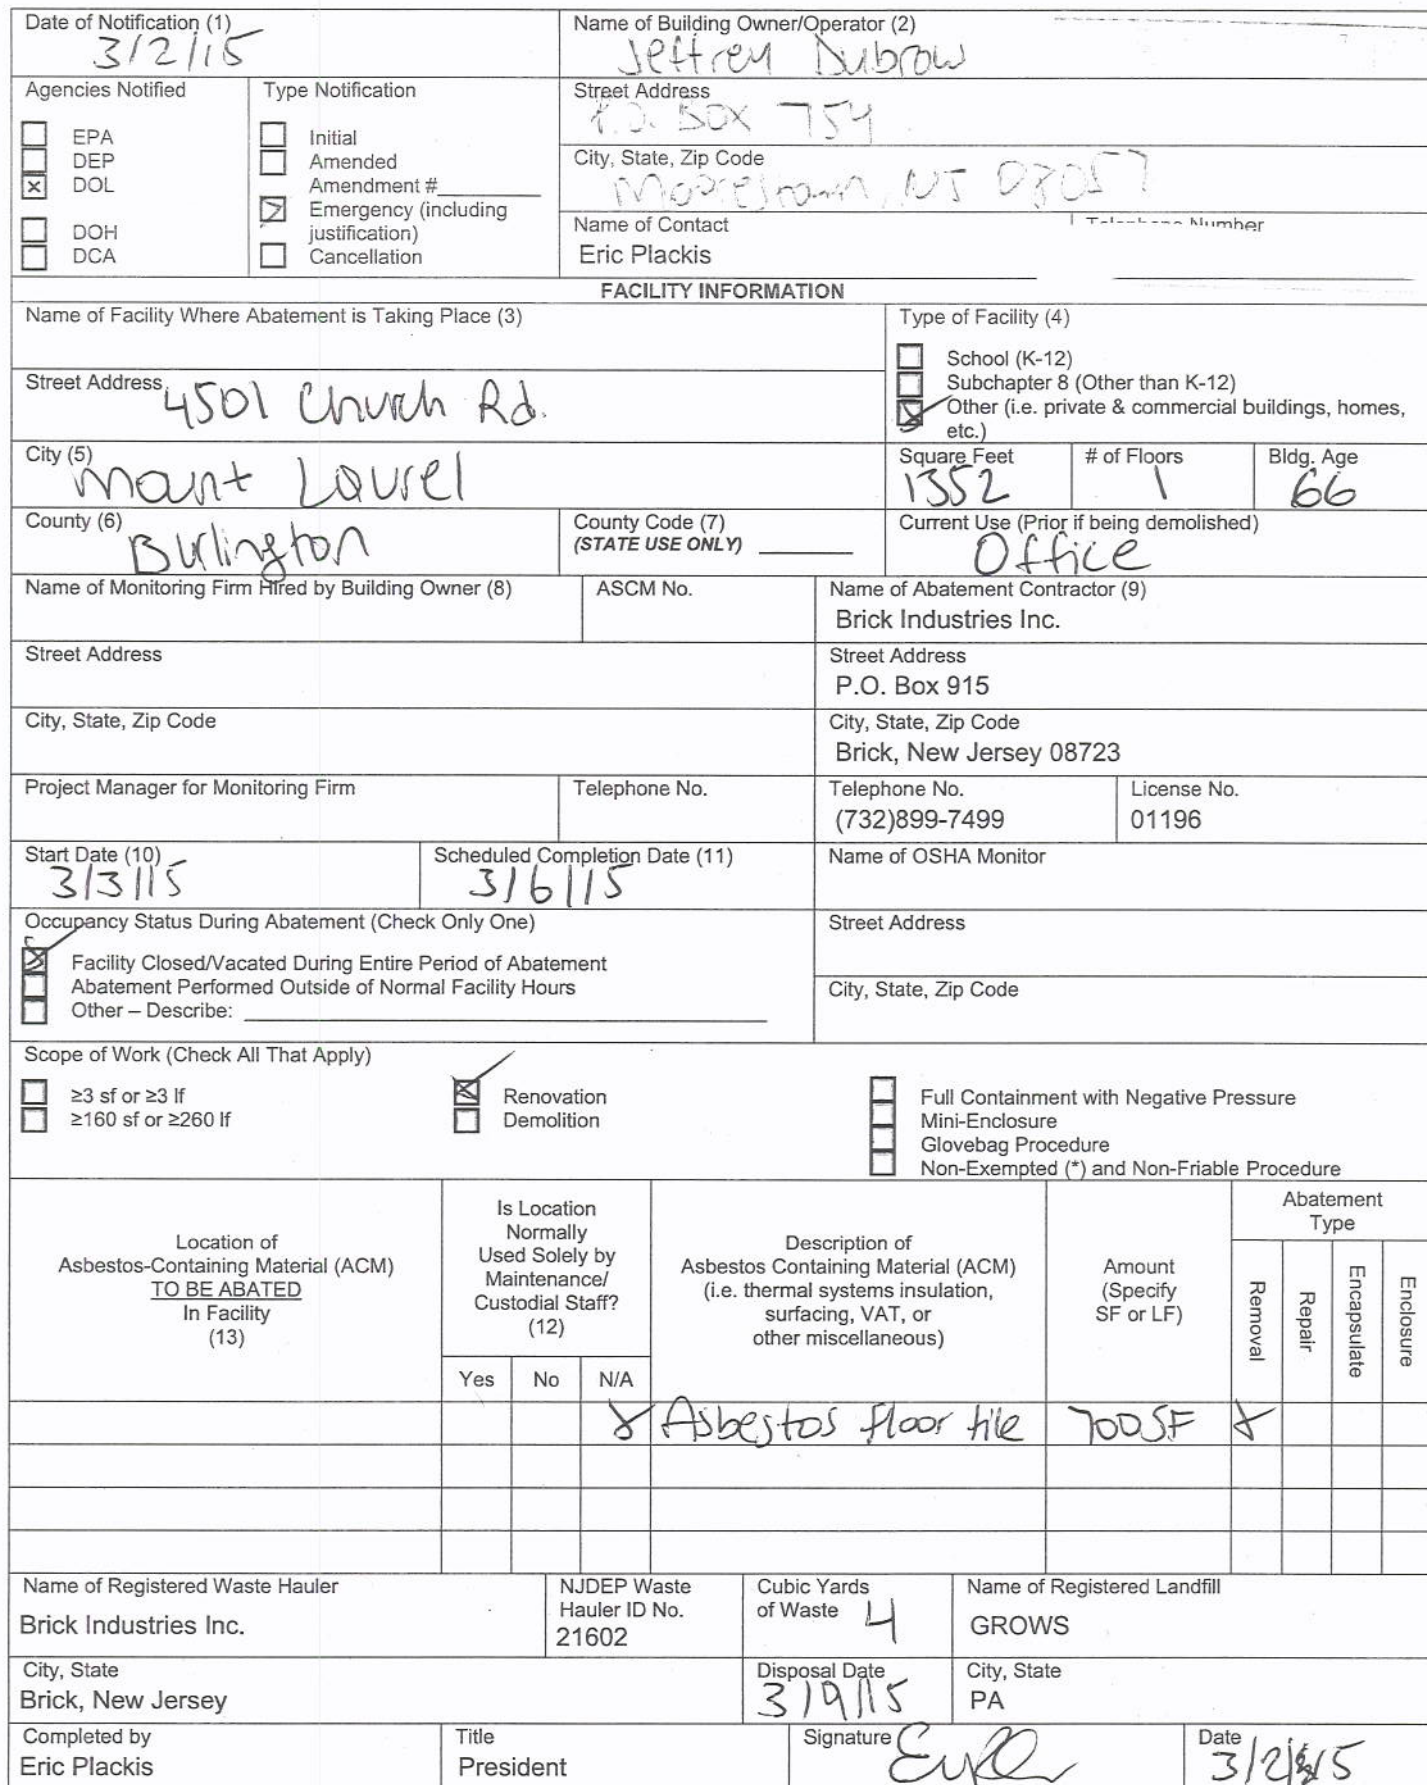 Date of Notification (1)
3/2/15
Name of Building Owner/Operator (2)
Jeffrey Dubrow
Agencies Notified
EPA
DEP
DOL
DOH
DCA
Type Notification
Initial
Amended
Amendment #
Emergency (including
justification)
Cancellation
Street Address
P.O. BOX 754
City, State, Zip Code
Moorestown, NJ 08057
Name of Contact
Eric Plackis
Telephone Number
FACILITY INFORMATION
Name of Facility Where Abatement is Taking Place (3)
Type of Facility (4)
School (K-12)
Subchapter 8 (Other than K-12)
Other (i.e. private & commercial buildings, homes,
etc.)
Street Address
4501 Church Rd.
City (5)
Mount Laurel
Square Feet
1352
# of Floors
1
Bldg. Age
66
County (6)
Burlington
County Code (7)
(STATE USE ONLY)
Current Use (Prior if being demolished)
Office
Name of Monitoring Firm Hired by Building Owner (8)
ASCM No.
Name of Abatement Contractor (9)
Brick Industries Inc.
Street Address
Street Address
P.O. Box 915
City, State, Zip Code
City, State, Zip Code
Brick, New Jersey 08723
Project Manager for Monitoring Firm
Telephone No.
Telephone No.
(732)899-7499
License No.
01196
Start Date (10)
3/3/15
Scheduled Completion Date (11)
3/6/15
Name of OSHA Monitor
Occupancy Status During Abatement (Check Only One)
Facility Closed/Vacated During Entire Period of Abatement
Abatement Performed Outside of Normal Facility Hours
Other – Describe:
Street Address
City, State, Zip Code
Scope of Work (Check All That Apply)
≥3 sf or ≥3 lf
≥160 sf or ≥260 lf
Renovation
Demolition
Full Containment with Negative Pressure
Mini-Enclosure
Glovebag Procedure
Non-Exempted (*) and Non-Friable Procedure
Location of
Asbestos-Containing Material (ACM)
TO BE ABATED
In Facility
(13)
Is Location
Normally
Used Solely by
Maintenance/
Custodial Staff?
(12)
Yes
No
N/A
Description of
Asbestos Containing Material (ACM)
(i.e. thermal systems insulation,
surfacing, VAT, or
other miscellaneous)
Amount
(Specify
SF or LF)
Abatement
Type
Removal
Repair
Encapsulate
Enclosure
X Asbestos floor tile 700SF X
Name of Registered Waste Hauler
Brick Industries Inc.
NJDEP Waste
Hauler ID No.
21602
Cubic Yards
of Waste 4
Name of Registered Landfill
GROWS
City, State
Brick, New Jersey
Disposal Date
3/9/15
City, State
PA
Completed by
Eric Plackis
Title
President
Signature
Date
3/2/15